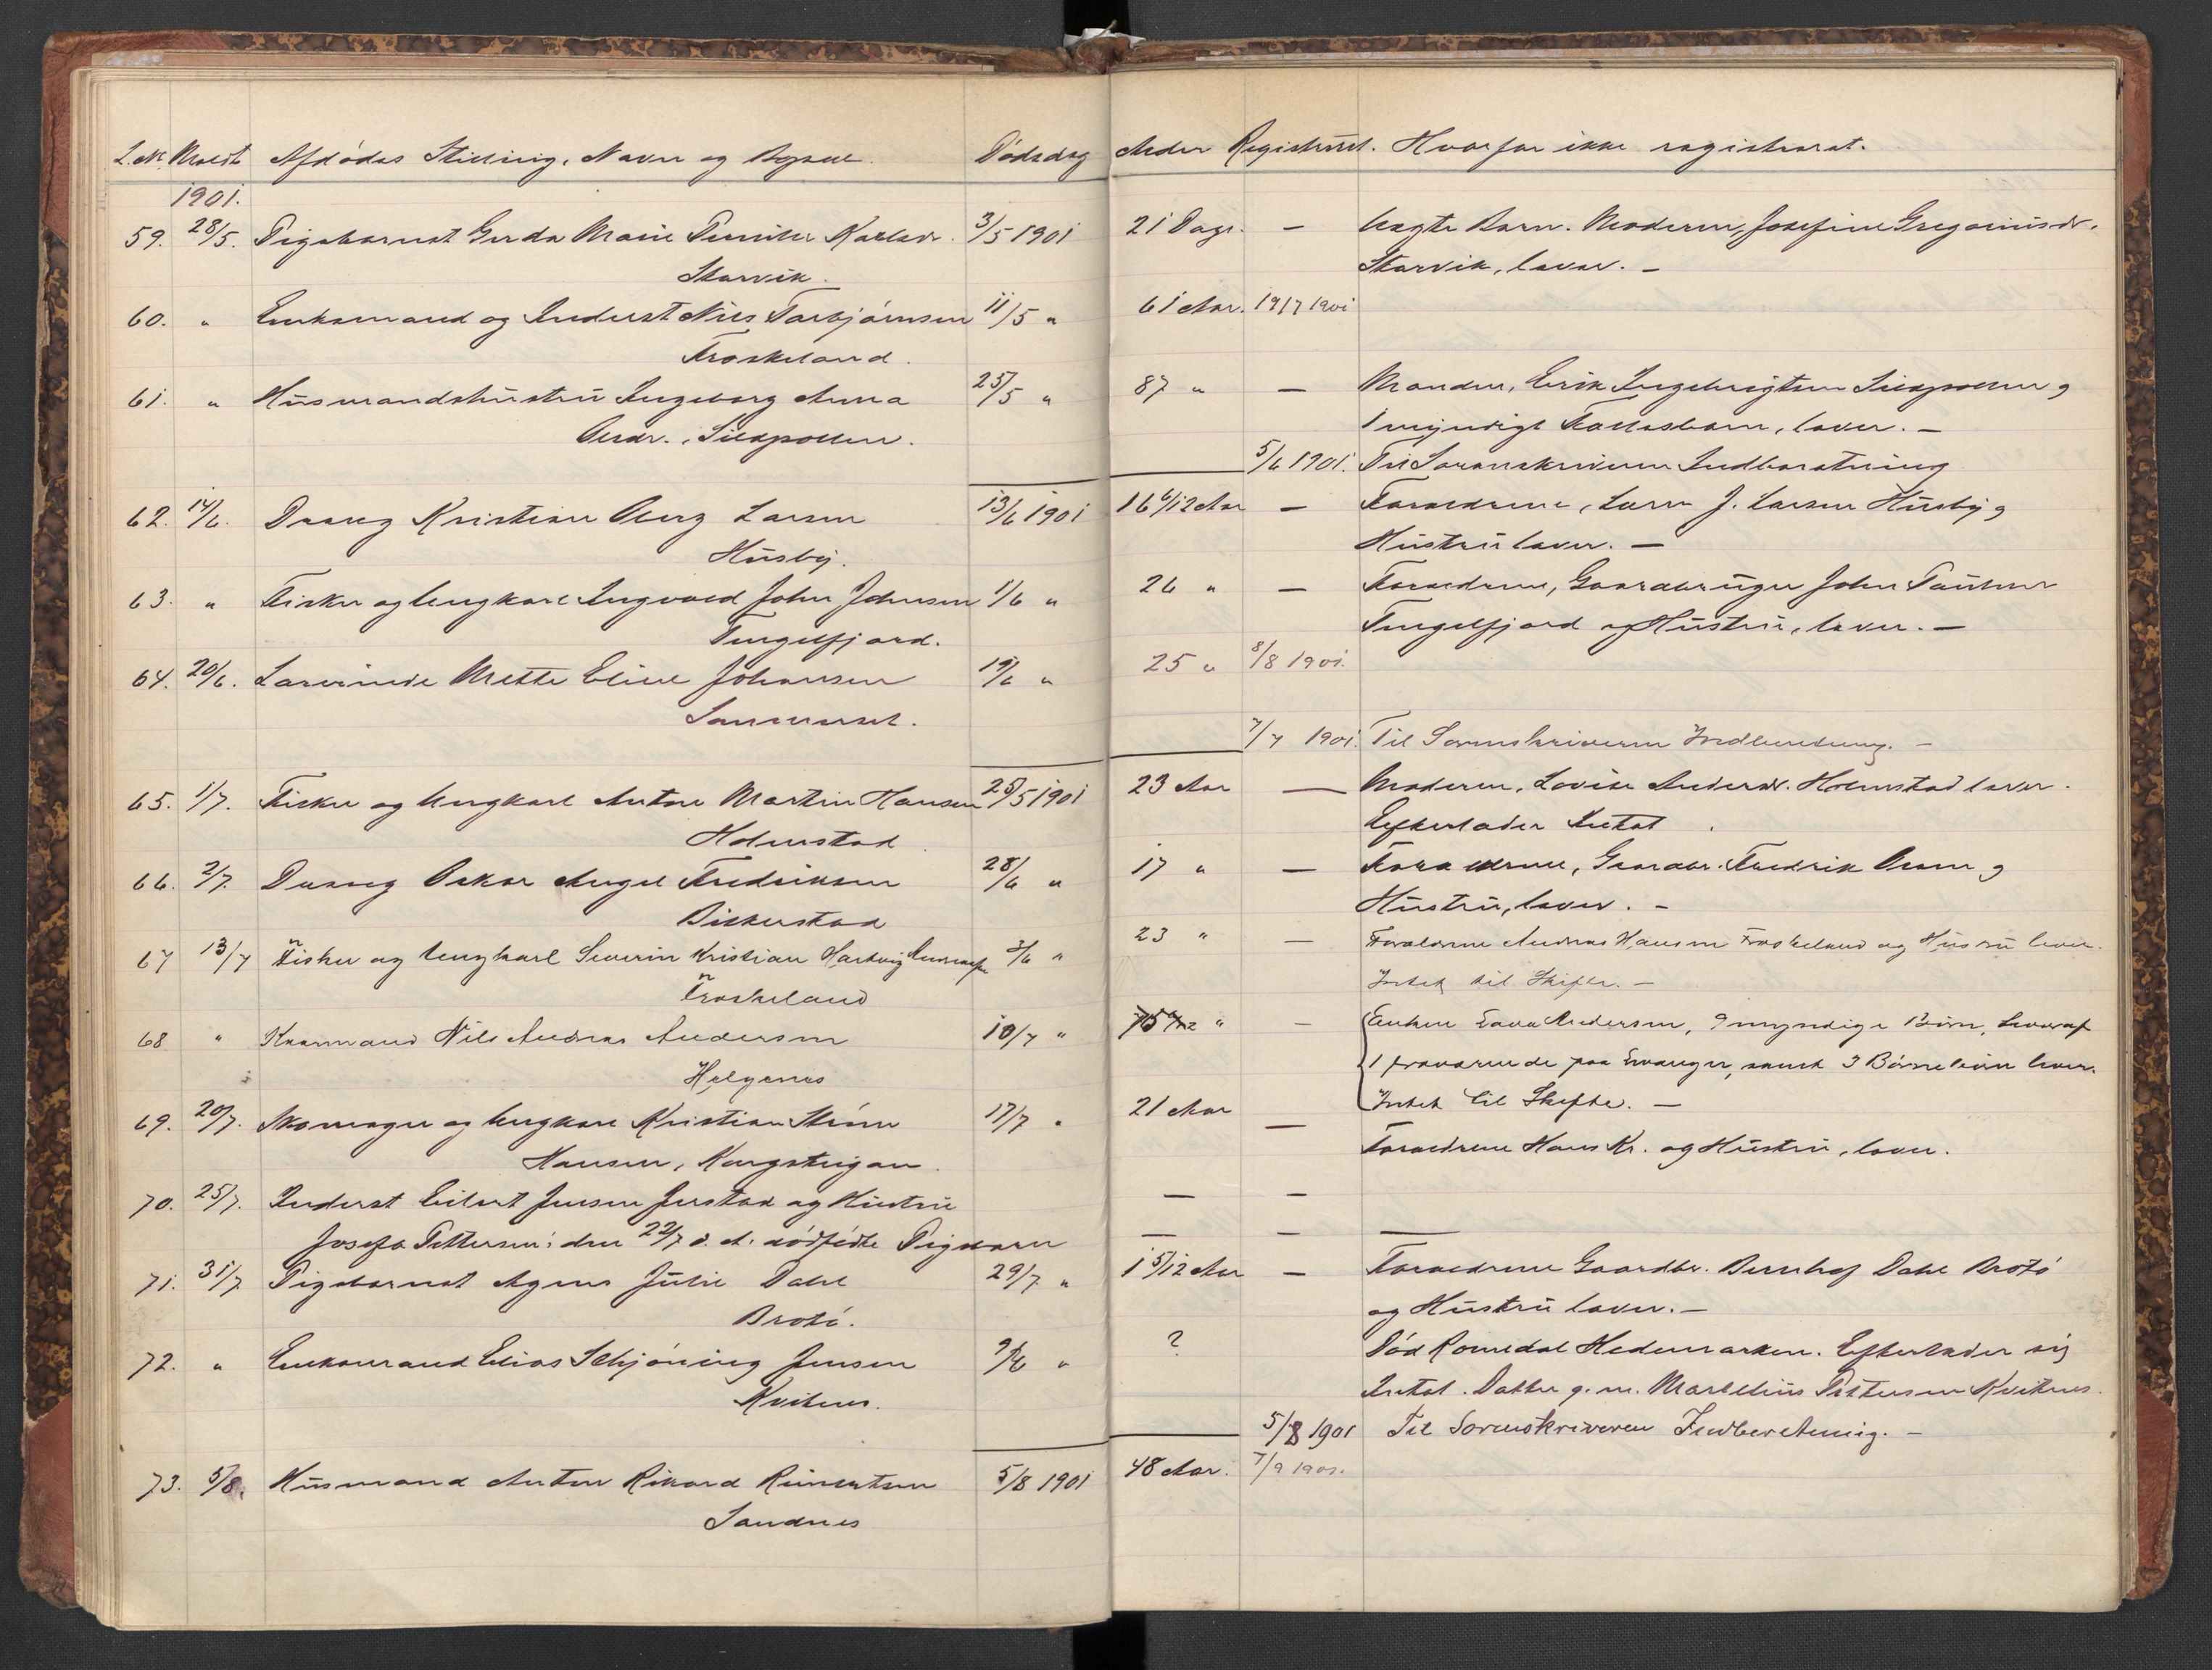 L.No Meldt Afdødes Stilling, Navn og Bopæl. Dødsdag
1901.
59. 28/5. Pigebarnet Gerda Marie Pernille Karlsdr. 3/5 1901
Storvik.
60. " Enkemand og Inderst Nils Torbjørnsen 11/5 "
Froskeland.
61. " Husmandshustru Ingeborg Anna 25/5 "
Olsdr., Sildpollen.
62. 14/6. Dreng Kristian Aug Larsen 13/6 1901
Husby.
63. " Fisker og Ungkarl Ingvald John Johnsen 1/6 "
Tengelfjord.
64. 20/6. Lærerinde Mette Eline Johansen 19/6 "
Sommerset.
65. 1/7. Fisker og Ungkarl Anton Martin Hansen 25/5 1901
Holmstad
66. 2/7. Dreng Oskar Angel Fredriksen 28/6 "
Bitterstad
67 13/7 Fisker og Ungkarl Severin Kristian Hartvig Andreasen 3/6 "
Froskeland
68 " Kaarmand Nils Andreas Andersen 10/7 "
Helgenes
69. 20/7. Skomager og Ungkarl Kristian Strøm 17/7 "
Hansen, Kongsteigan.
70. 25/7. Inderst Eilert Jensen Jerstad og Hustru
Josefa Pettersen: den 22/7 d. A. dødfødte Pigebarn
71. 31/7 Pigebarnet Agnes Julie Dahl 29/7 "
Brotø.
72. " Enkemand Elias Schjøning Jensen 9/6 "
Kvitnes.
73. 5/8. Husmand Anton Rikard Reinertsen 5/8 1901
Sandnes
Alder Registreret. Hvorfor ikke registreret.
21 Dage. — Uægte Barn. Moderen, Josefine Gregoriusdr.
Storvik, lever. —
61 Aar. 19/7 1901
87 " — Manden, Erik Ingebrigtsen Sildpollen og
1 myndigt Fællesbarn, lever. —
5/6 1901. Til Sorenskriveren Indberetning
16 6/12 Aar — Forældrene, Lars J. Larsen Husby og
Hustru lever. —
26 " — Forældrene, Gaardbruger John Paulsen
Tengelfjord og Hustru, lever. —
25 " 8/8 1901.
7/7 1901. Til Sorenskriveren Indberetning. —
23 Aar — Moderen, Lovise Andersdr. Holmstad lever.
Efterlader Intet.
17 " — Forældrene, Gaardbr. Fredrik Olsen og
Hustru, lever. —
23 " — Forældrene Andreas Hansen Froskeland og Hustru lever.
Intet til Skifte. —
75 " — Enken Andersen, 9 myndige Børn, hvoraf
1 fraværende paa samt 3 Børnebørn lever.
Intet til Skifte. —
21 Aar — Forældrene Hans Kr. og Hustru, lever.
— —
— — —
1 5/12 Aar — Forældrene Gaardbr. Bernhof Dahl Brotø
og Hustru lever. —
? Død Romedal Hedemarken. Efterlader sig
Intet. Datter g. m. Martelius Pettersen Kvitnes.
5/8 1901 Til Sorenskriveren Indberetning. —
48 Aar. 7/9 1901.